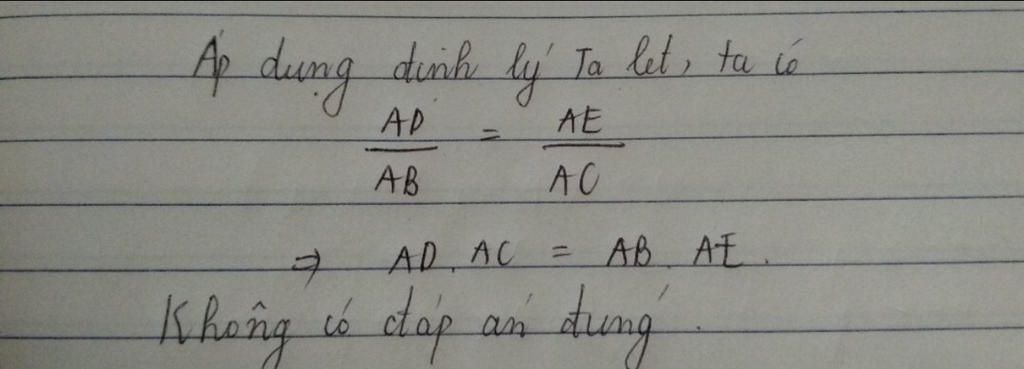 Áp dụng định lý Ta let, ta có
AD/AB = AE/AC
⇒ AD. AC = AB. AE.
Không có đáp án đúng.